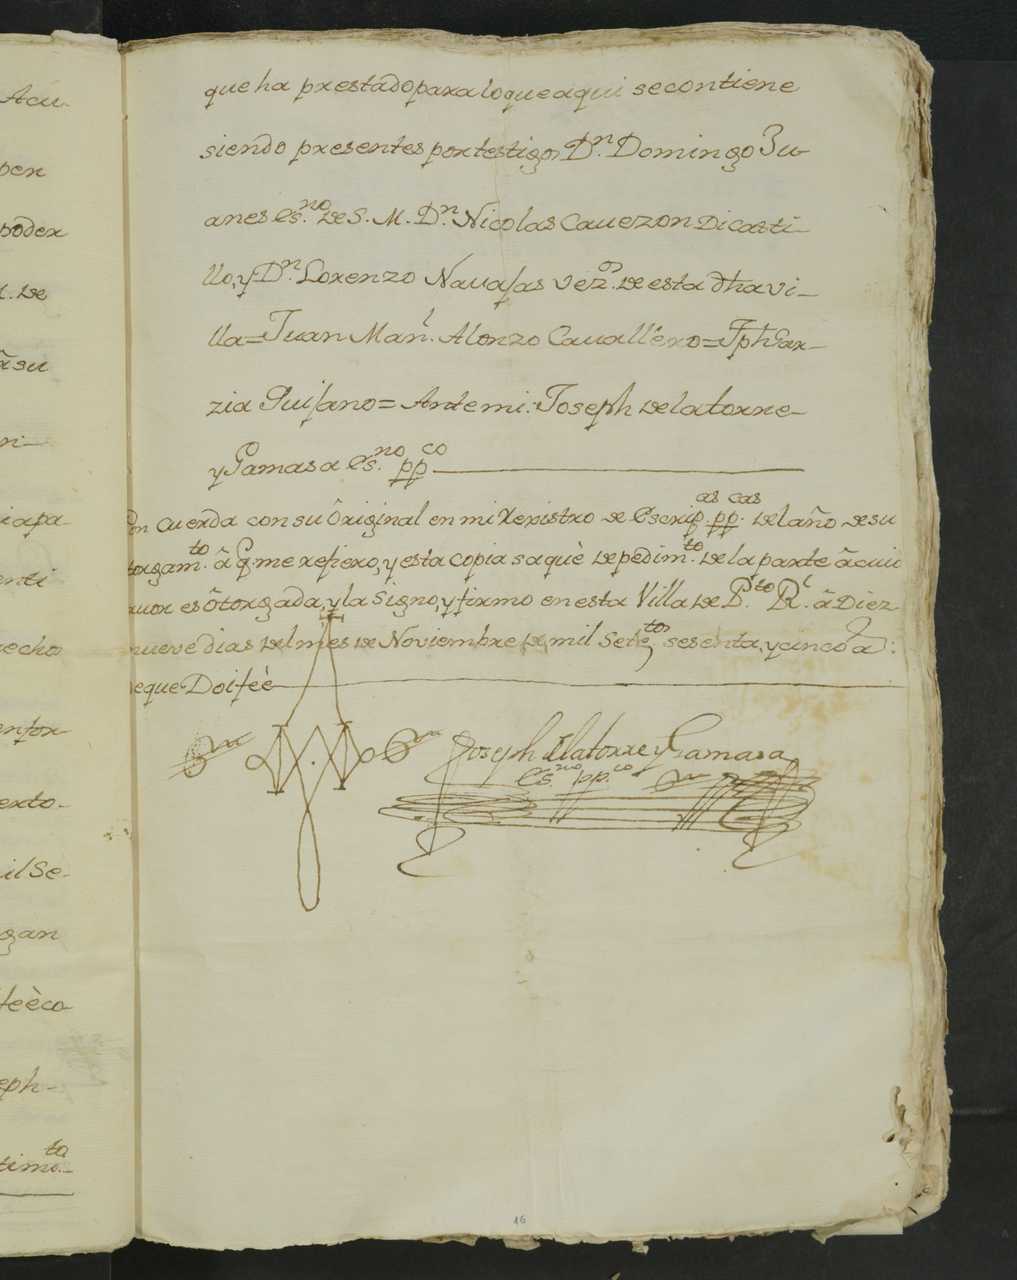 Acu-
per
poder
de
su
n-
iapa-
enti
echo
enfor-
exto-
il Se-
gan
feèca
eph-
timo.ta
que ha prestado para lo que aqui se contiene
siendo presentes por testigos Dn. Domingo Ju-
anes Es.no de S. M. Dn. Nicolas Cavezon Dicasti-
llo, y Dn. Lorenzo Navajas vez.os de esta dha vi-
lla = Juan Man.l Alonzo Cavallero = Jph Gar-
zia Quijano = Ante mi: Joseph de la torre-
y Gamasa Es.no pp.co
Con cuerda con su Original en mi Rexistro de Escrip.as pp.cas del año de su
torgam.to â q. me refiero, y esta copia saquè de pedim.to de la parte â cuio
vor es ôtorgada, y la signo, y firmo en esta Villa de P.to R.l â Diez
nueve dias del mes de Noviembre de mil Sete.tos sesenta, y cinco a.s:
de que Doi feè
Joseph de la torre y Gamasa
Es.no pp.co
16